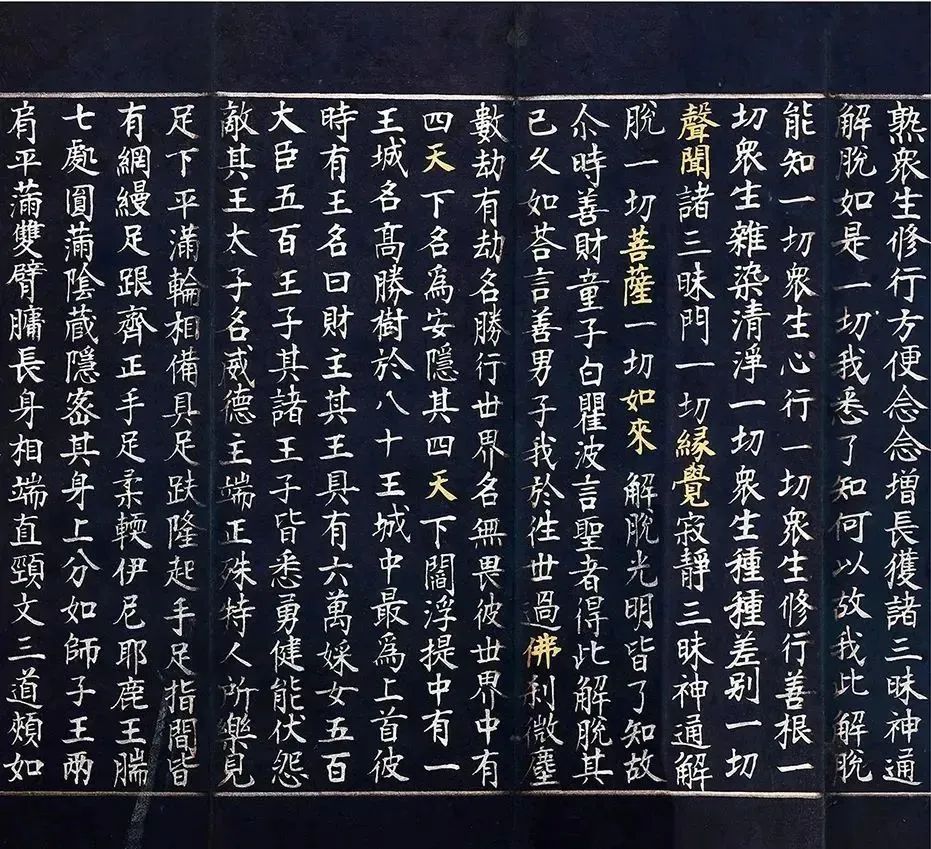 熟衆生修行方便念念增長獲諸三昧神通
解脫如是一切我悉了知何以故我此解脫
能知一切衆生心行一切衆生修行善根一
切衆生雜染清淨一切衆生種種差別一切
聲聞諸三昧門一切緣覺寂靜三昧神通解
脫一切菩薩一切如來解脫光明皆了知故
尒時善財童子白瞿波言聖者得此解脫其
已久如荅言善男子我於往世過佛刹微塵
數劫有劫名勝行世界名無畏彼世界中有
四天下名爲安隱其四天下閻浮提中有一
王城名髙勝樹於八十王城中最爲上首彼
時有王名曰財主其王具有六萬婇女五百
大臣五百王子其諸王子皆悉勇健能伏怨
敵其王太子名威德主端正殊特人所樂見
足下平滿輪相備具足趺隆起手足指間皆
有網縵足跟齊正手足柔輭伊尼耶鹿王腨
七處圓滿陰藏隱宻其身上分如師子王兩
肩平滿雙臂𦟛長身相端直頸文三道頰如